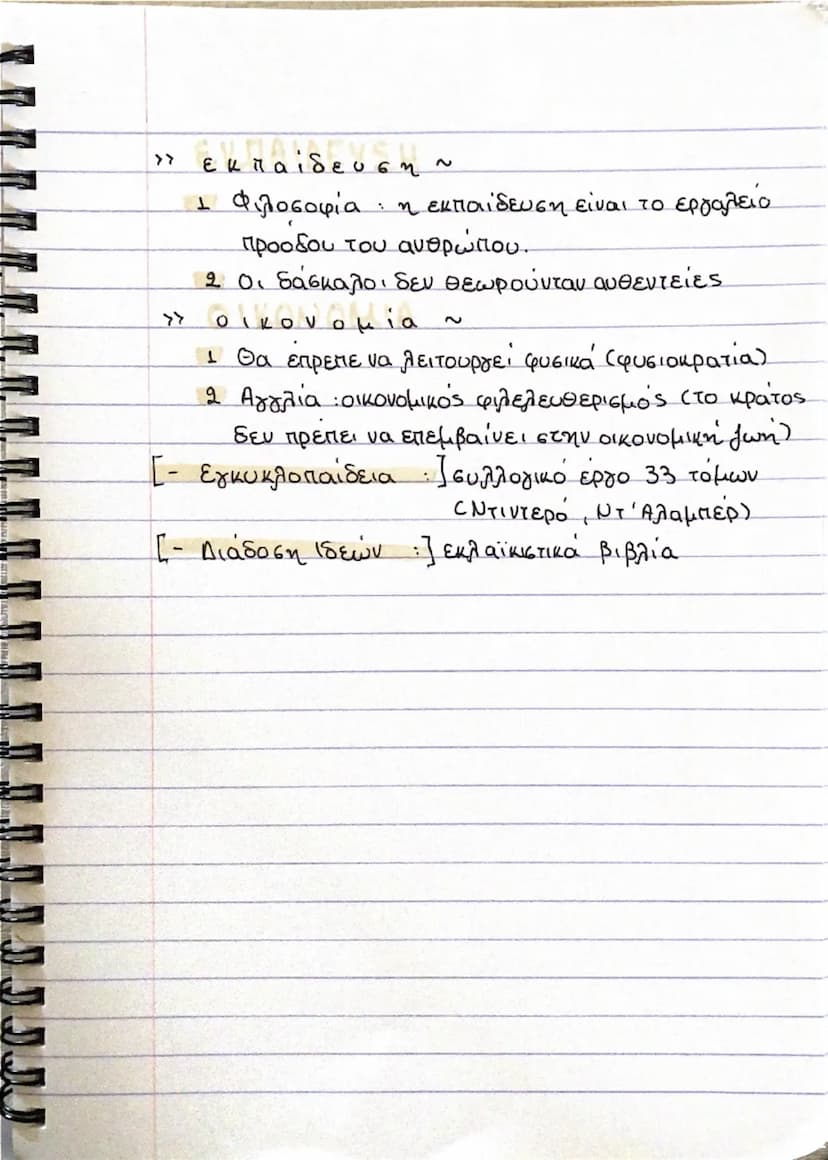 >> εκπαίδευση ~
1 Φιλοσοφία : η εκπαίδευση είναι το εργαλείο
προόδου του ανθρώπου.
2 Οι δάσκαλοι δεν θεωρούνταν αυθεντείες
>> οικονομία ~
1 Θα έπρεπε να λειτουργεί φυσικά (φυσιοκρατία)
2 Αγγλία : οικονομικός φιλελευθερισμός (το κράτος
δεν πρέπει να επεμβαίνει στην οικονομική ζωή)
[- Εγκυκλοπαίδεια :] συλλογικό έργο 33 τόμων
(Ντιντερό, Ντ'Αλαμπέρ)
[- Διάδοση Ιδεών :] εκλαϊκιστικά βιβλία